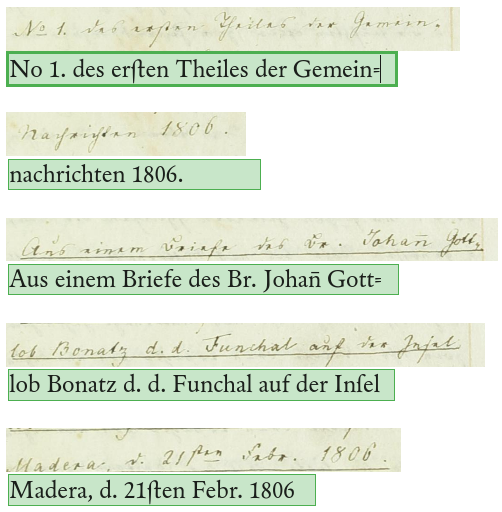 No 1. des erſten Theiles der Gemein⸗
No 1. des erſten Theiles der Gemein⸗
Nachrichten 1806.
nachrichten 1806.
Aus einem Briefe des Br. Johan̄ Gott⸗
Aus einem Briefe des Br. Johan̄ Gott⸗
lob Bonatz d. d. Funchal auf der Inſel
lob Bonatz d. d. Funchal auf der Inſel
Madera, d. 21ſten Febr. 1806.
Madera, d. 21ſten Febr. 1806